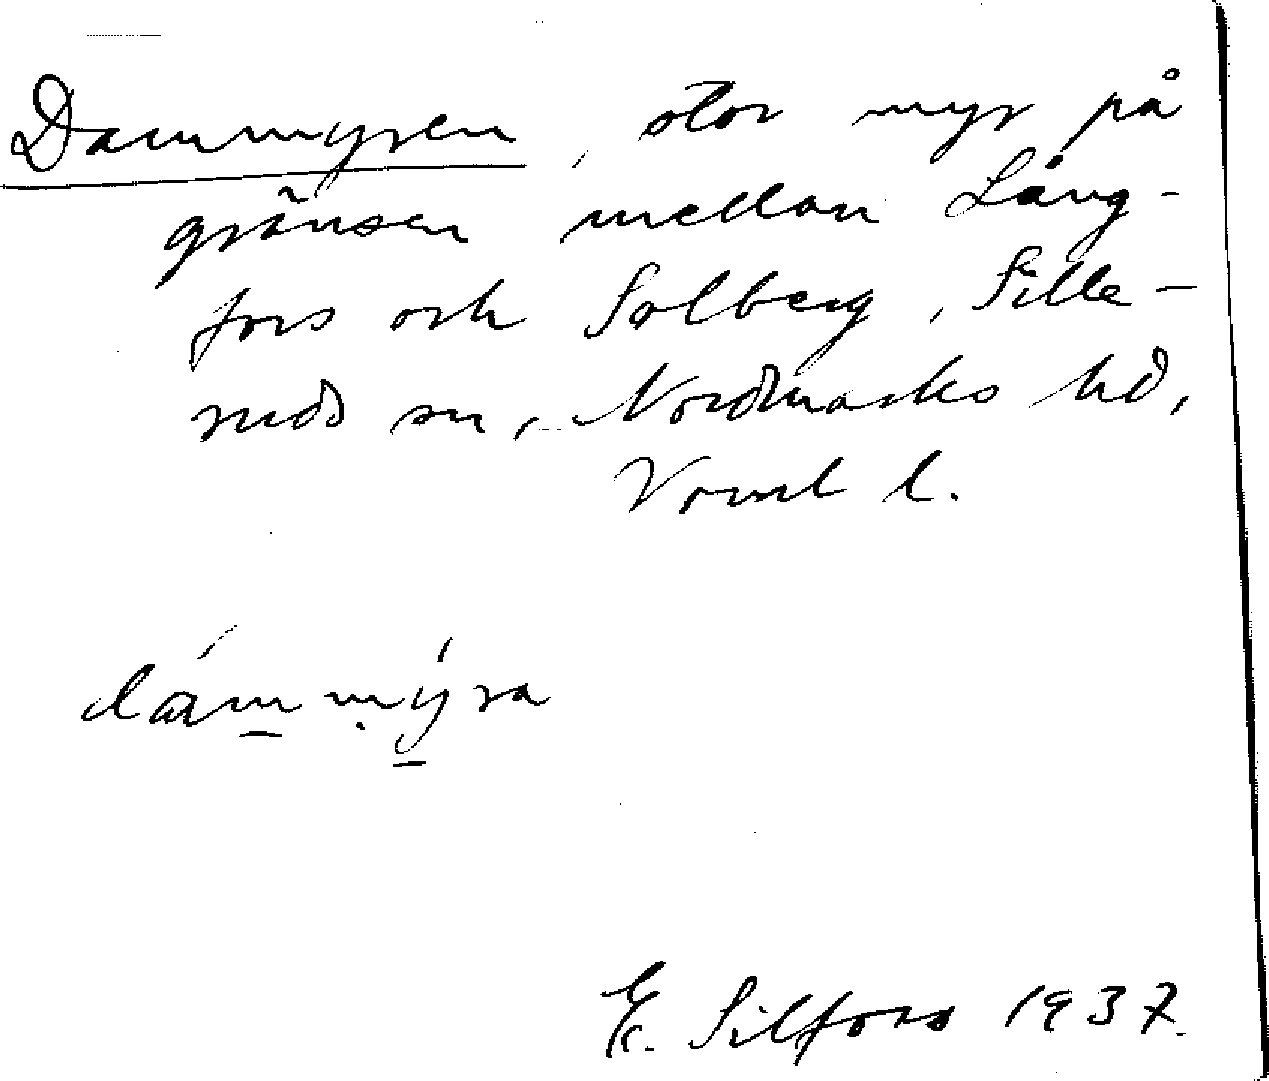 Dammyren, stor myr på
gränsen mellan Lång-
fors och Solberg, Sille-
ruds sn, Nordmarks hd,
Värml l.
dámmýra
E. Silfors 1937.